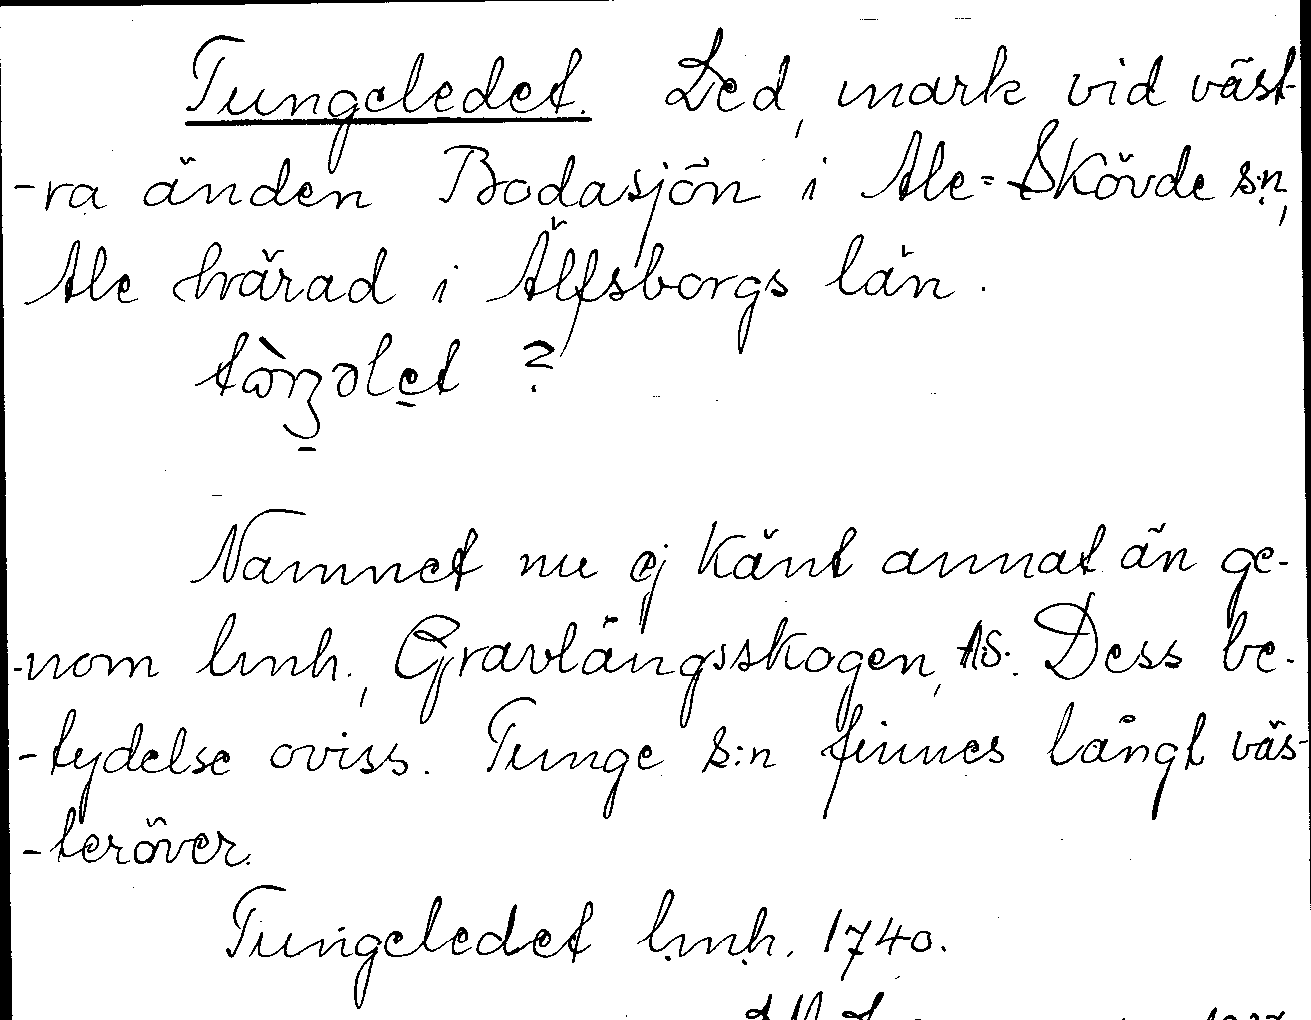 Tungeledet. Led, mark vid väst-
-ra änden Bodasjön i Ale-Skövde s:n,
Ale härad i Älfsborgs län.
?
Namnet nu ej känt annat än ge-
-nom lmh., Gravlångsskogen, AS. Dess be-
-tydelse oviss. Tunge s:n finnes långt väs-
-teröver.
Tungeledet lmh. 1740.